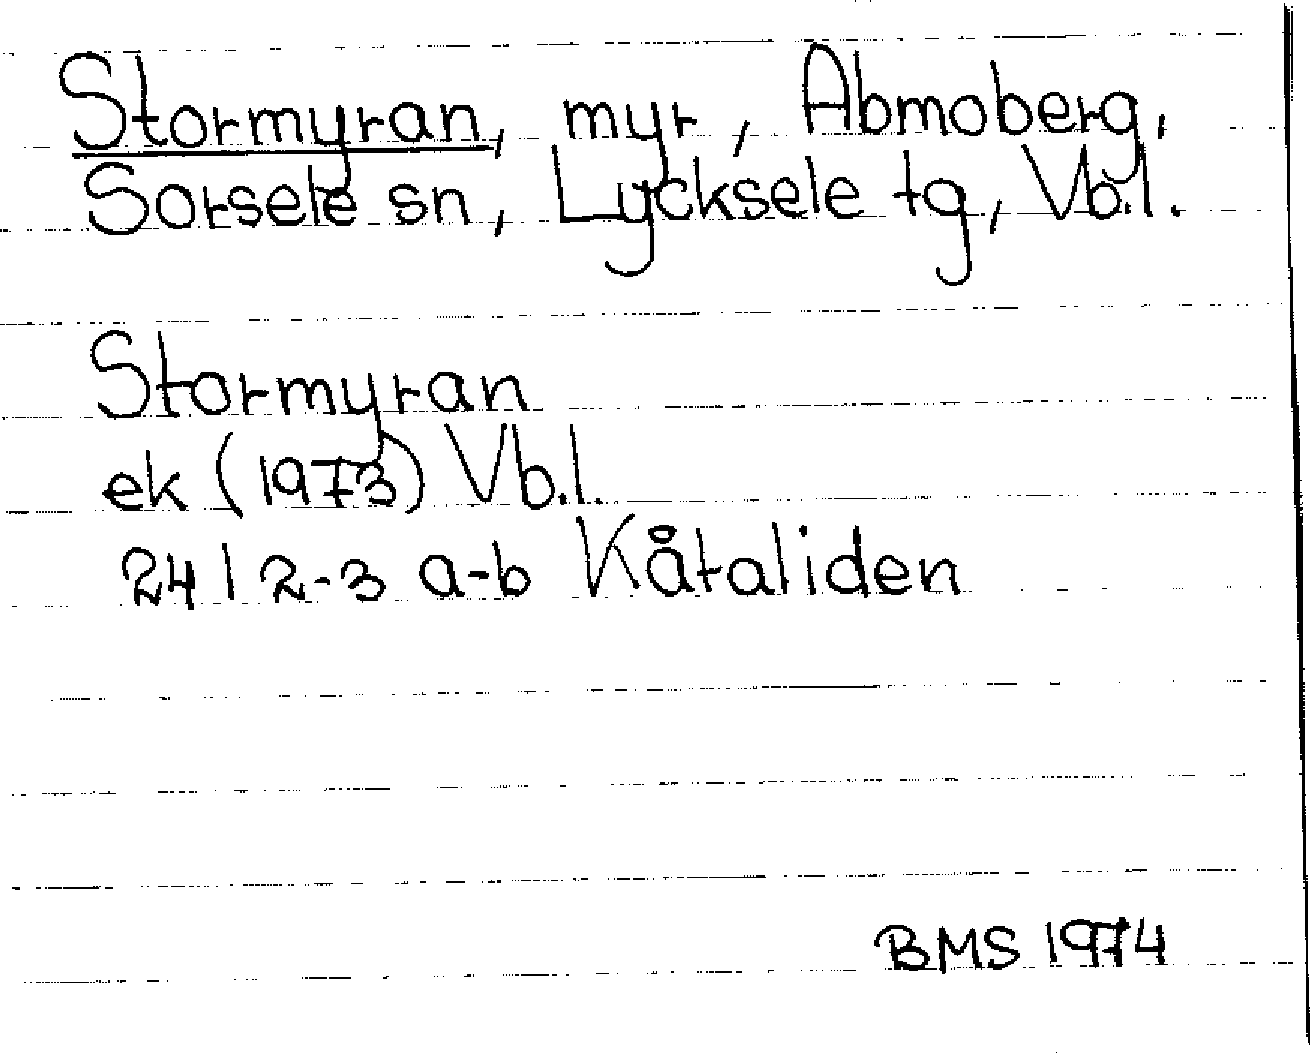 Stormyran, myr, Abmoberg,
Sorsele sn, Lycksele tg, Vb.l.
Stormyran
ek (1973) Vb.l.
24 I 2-3 a-b Kåtaliden
BMS 1974